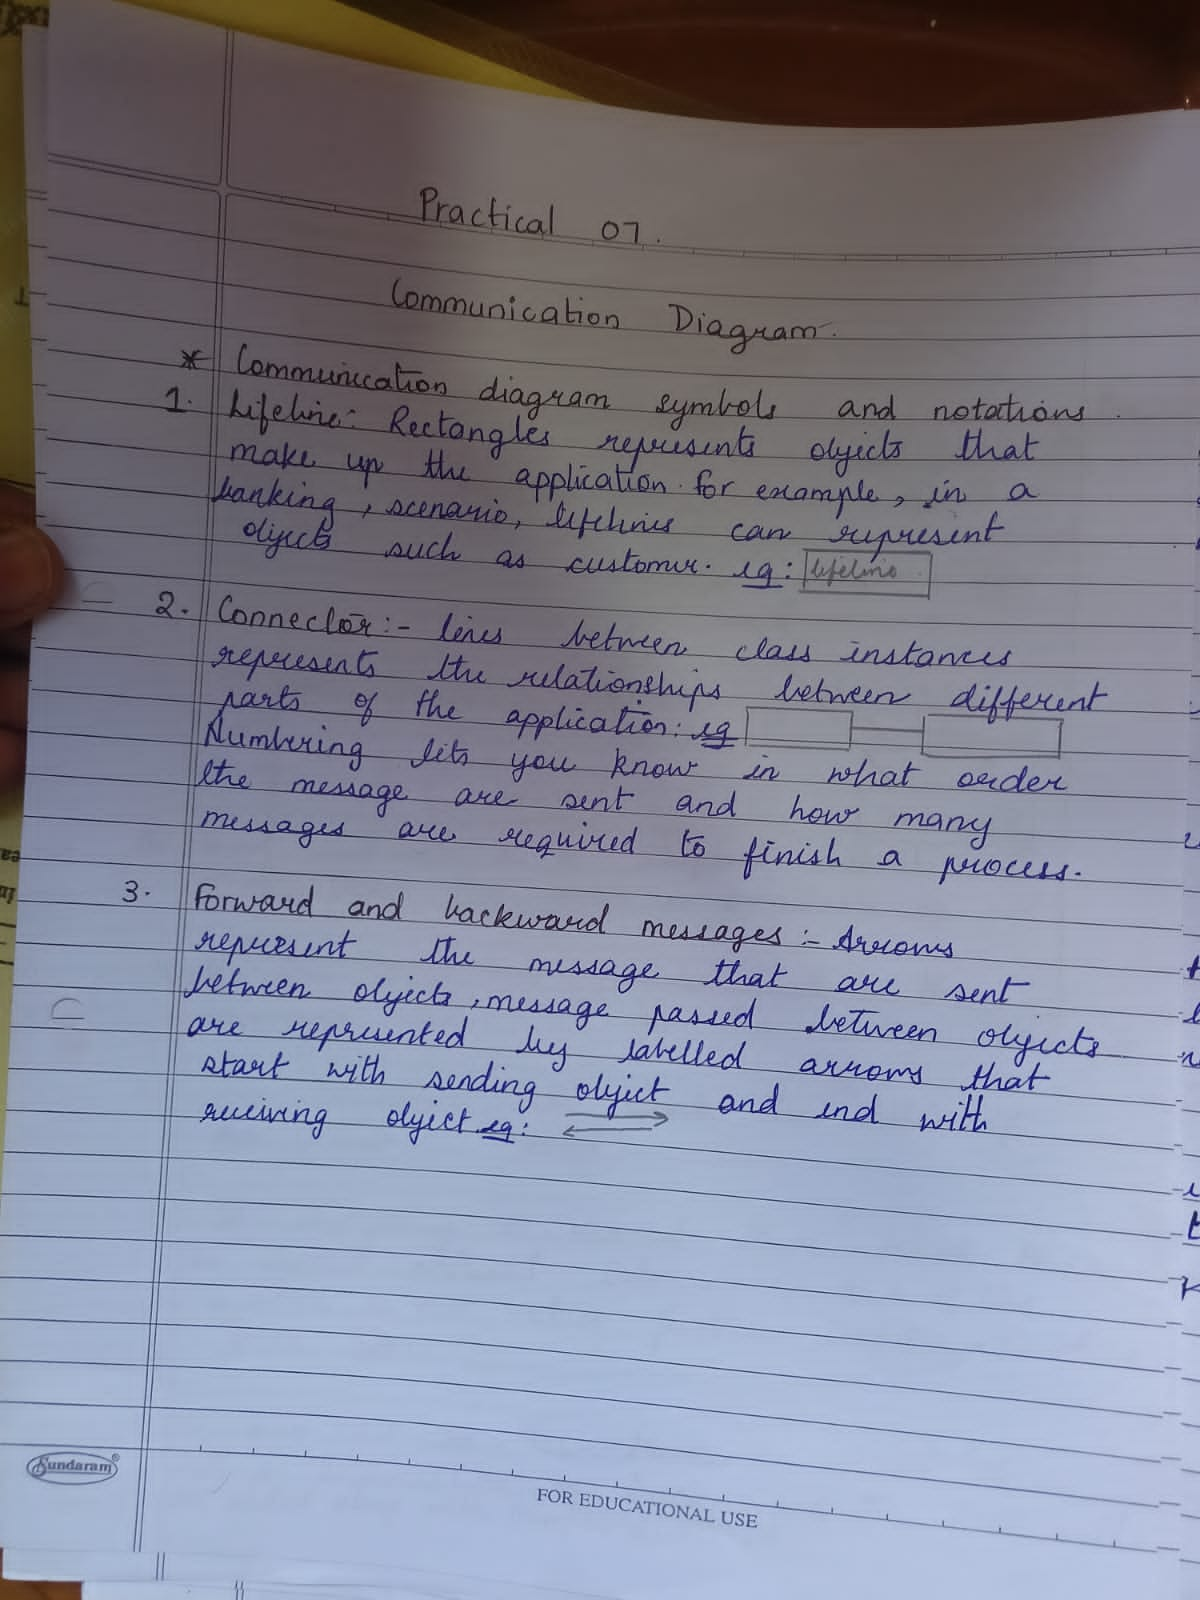 Practical 07.
Communication Diagram.
* Communication diagram symbols and notations.
1. Lifeline: Rectangles represents objects that
make up the application. for example, in a
banking, scenario, lifelines can represent
objects such as customer. eg: lifeline
2. Connector:- lines between class instances
represents the relationships between different
parts of the application: eg
Numbering lets you know in what order
the message are sent and how many
messages are required to finish a process.
3. Forward and backward messages:- Arrows
represent the message that are sent
between objects, message passed between objects
are represented by labelled arrows that
start with sending object and end with
receiving object. eg:
Sundaram®
FOR EDUCATIONAL USE